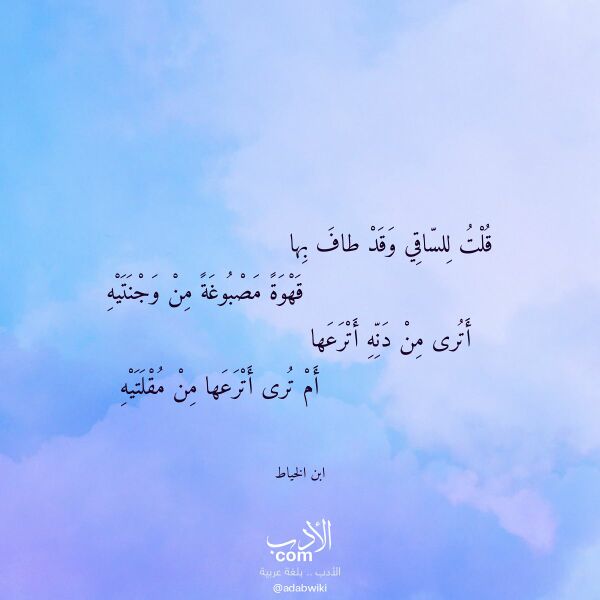 قُلْتُ لِلسّاقِي وَقَدْ طافَ بِها
قَهْوَةً مَصْبُوغَةً مِنْ وَجْنَتَيْهِ
أَتُرى مِنْ دَنِّهِ أَتْرَعَها
أَمْ تُرى أَتْرَعَها مِنْ مُقْلَتَيْهِ
ابن الخياط
الأدب
com
الأدب .. بلغة عربية
@adabwiki